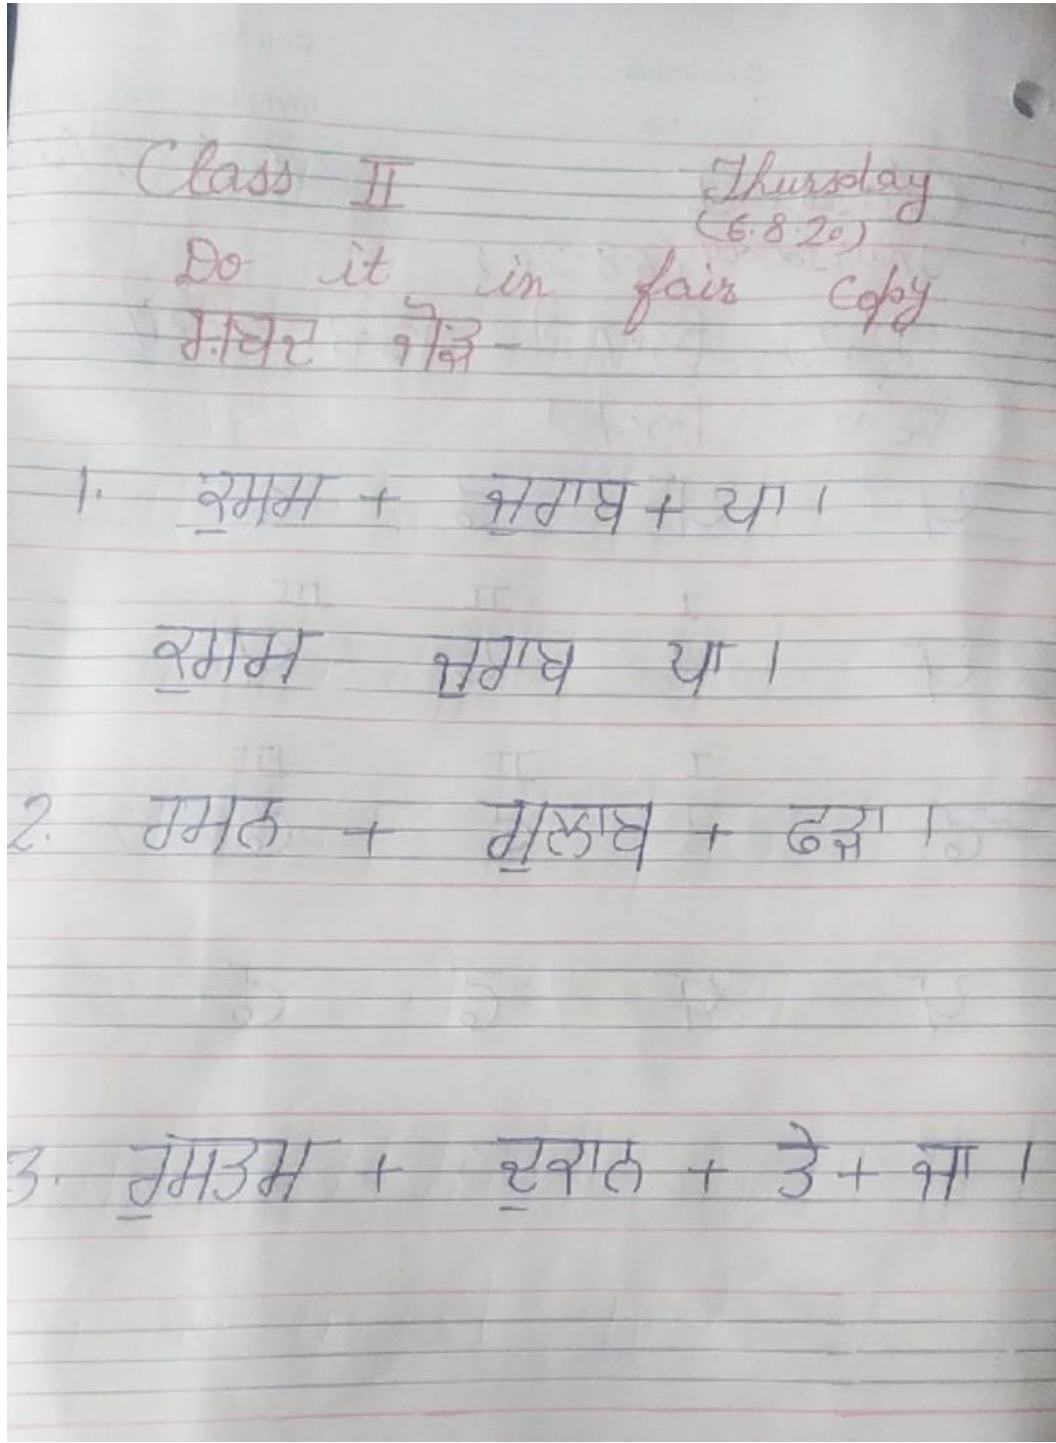 Class II Thursday
(6.8.20)
Do it in fair copy
ਸ਼ਬਦ ਜੋੜੋ -
1. ਕੁਸਮ + ਜੁਰਾਬ + ਪਾ ।
ਕੁਸਮ ਜੁਰਾਬ ਪਾ ।
2. ਰਮਨ + ਗੁਲਾਬ + ਫੜਾ ।
3. ਰੁਸਤਮ + ਦੁਕਾਨ + ਤੇ + ਜਾ ।